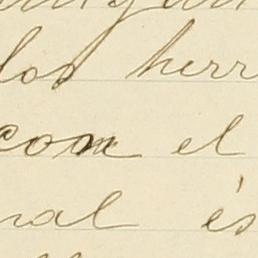 los herr
con el
ral és